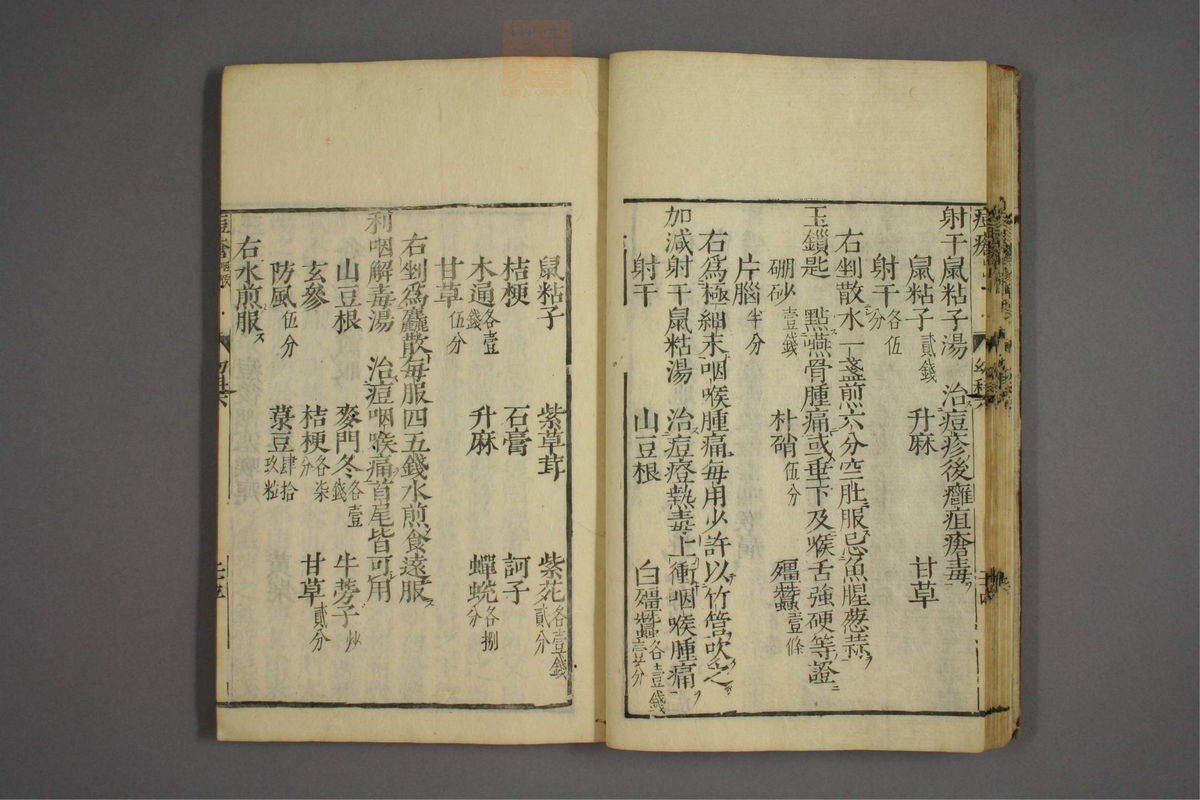 射干鼠粘子湯 治痘疹後癰疽瘡毒
鼠粘子貳錢 升麻 甘草
射干各伍分
右剉散水一盞煎六分空肚服忌魚腥葱蒜
玉鎖匙 點燕骨腫痛或垂下及喉舌強硬等證
硼砂壹錢 朴硝伍分 殭蠶壹條
片腦半分
右爲極細末咽喉腫痛每用少許以竹管吹之
加減射干鼠粘湯 治痘證熱毒上衝咽喉腫痛
射干 山豆根 白殭蠶各壹錢
鼠粘子 紫草茸 紫菀各壹錢貳分
桔梗 石膏 訶子
木通各壹錢 升麻 蟬蛻各捌分
甘草伍分
右剉爲麤散每服四五錢水煎食遠服
利咽解毒湯 治痘咽喉痛首尾皆可用
山豆根 麥門冬各壹錢 牛蒡子炒
玄參 桔梗各柒分 甘草貳分
防風伍分 菉豆肆拾玖粒
右水煎服